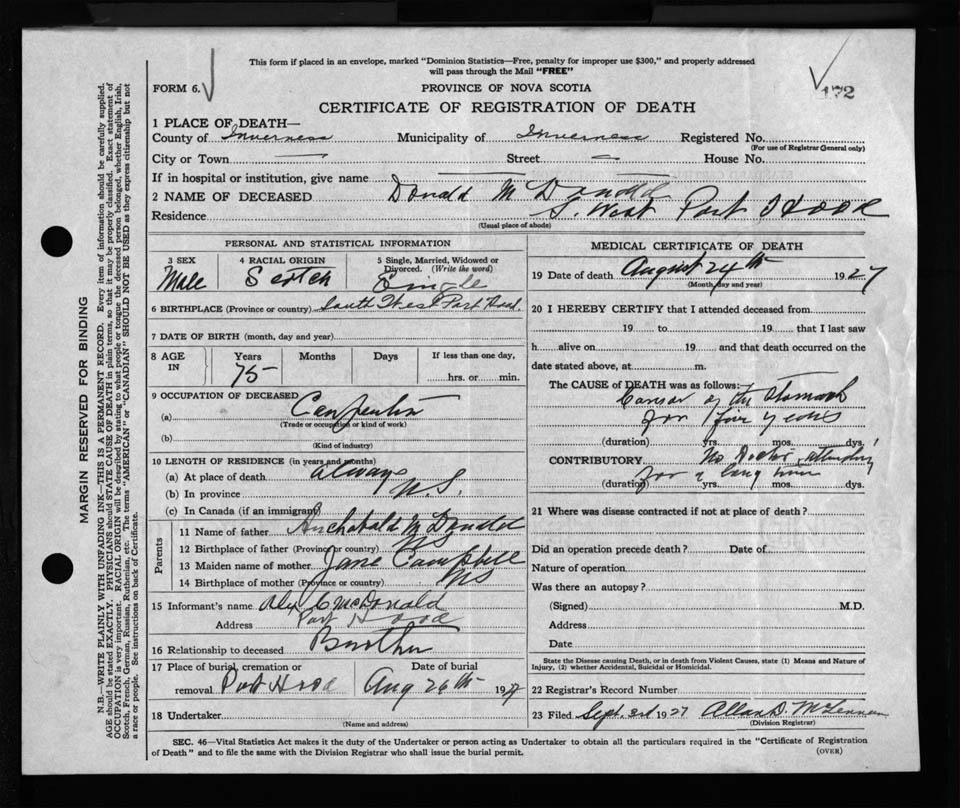 This form if placed in an envelope, marked "Dominion Statistics—Free, penalty for improper use $300," and properly addressed
will pass through the Mail "FREE"
FORM 6.
PROVINCE OF NOVA SCOTIA
172
CERTIFICATE OF REGISTRATION OF DEATH
1 PLACE OF DEATH—
County of Inverness Municipality of Inverness Registered No.
(For use of Registrar General only)
City or Town — Street — House No.
If in hospital or institution, give name
2 NAME OF DECEASED Donald McDonald
Residence S. West Port Hood
(Usual place of abode)
PERSONAL AND STATISTICAL INFORMATION
3 SEX Male
4 RACIAL ORIGIN Scotch
5 Single, Married, Widowed or Divorced. (Write the word) Single
6 BIRTHPLACE (Province or country) South West Port Hood.
7 DATE OF BIRTH (month, day and year)
8 AGE IN Years Months Days If less than one day,
75 hrs. or min.
9 OCCUPATION OF DECEASED
(a) Carpenter
(Trade or occupation or kind of work)
(b)
(Kind of industry)
10 LENGTH OF RESIDENCE (in years and months)
(a) At place of death always
(b) In province N.S.
(c) In Canada (if an immigrant)
Parents
11 Name of father Archabald McDonald
12 Birthplace of father (Province or country) NS
13 Maiden name of mother Jane Campbell
14 Birthplace of mother (Province or country) NS
15 Informant's name Alex C McDonald
Address Port Hood
16 Relationship to deceased Brother
17 Place of burial, cremation or removal Port Hood
Date of burial Aug 26th 1927
18 Undertaker
(Name and address)
MEDICAL CERTIFICATE OF DEATH
19 Date of death August 24th 1927
(Month, day and year)
20 I HEREBY CERTIFY that I attended deceased from
19 to 19 that I last saw
h alive on 19 and that death occurred on the
date stated above, at m.
The CAUSE of DEATH was as follows:
Cansor of the Stomach
for four years
(duration) yrs. mos. dys.
CONTRIBUTORY No Doctor attending
for a long time
(duration) yrs. mos. dys.
21 Where was disease contracted if not at place of death?
Did an operation precede death? Date of
Nature of operation
Was there an autopsy?
(Signed) M.D.
Address
Date
State the Disease causing Death, or in death from Violent Causes, state (1) Means and Nature of
Injury, (2) whether Accidental, Suicidal or Homicidal.
22 Registrar's Record Number
23 Filed Sept. 3rd 1927 Allan D. McLennan
(Division Registrar)
SEC. 46—Vital Statistics Act makes it the duty of the Undertaker or person acting as Undertaker to obtain all the particulars required in the "Certificate of Registration
of Death" and to file the same with the Division Registrar who shall issue the burial permit.
(OVER)
MARGIN RESERVED FOR BINDING
N.B.—WRITE PLAINLY WITH UNFADING INK—THIS IS A PERMANENT RECORD. Every item of information should be carefully supplied.
AGE should be stated EXACTLY. PHYSICIANS should STATE CAUSE OF DEATH in plain terms, so that it may be properly classified. Exact statement of
OCCUPATION is very important. RACIAL ORIGIN will be described by stating to what people or tongue the deceased person belonged, whether English, Irish,
Scotch, French, German, Russian, Ruthenian, etc. The terms "AMERICAN" or "CANADIAN" SHOULD NOT BE USED as they express citizenship but not
a race or people. See instructions on back of Certificate.